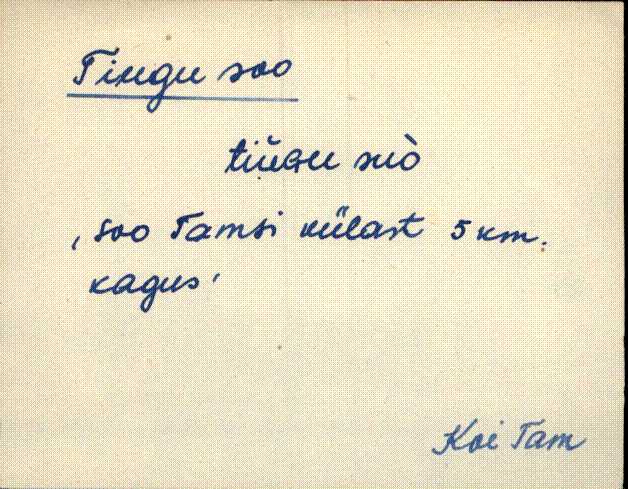 Tiugu soo
tiŭɢu suò
‚ soo Tamsi külast 5 km.
kagus ’
Koi Tam